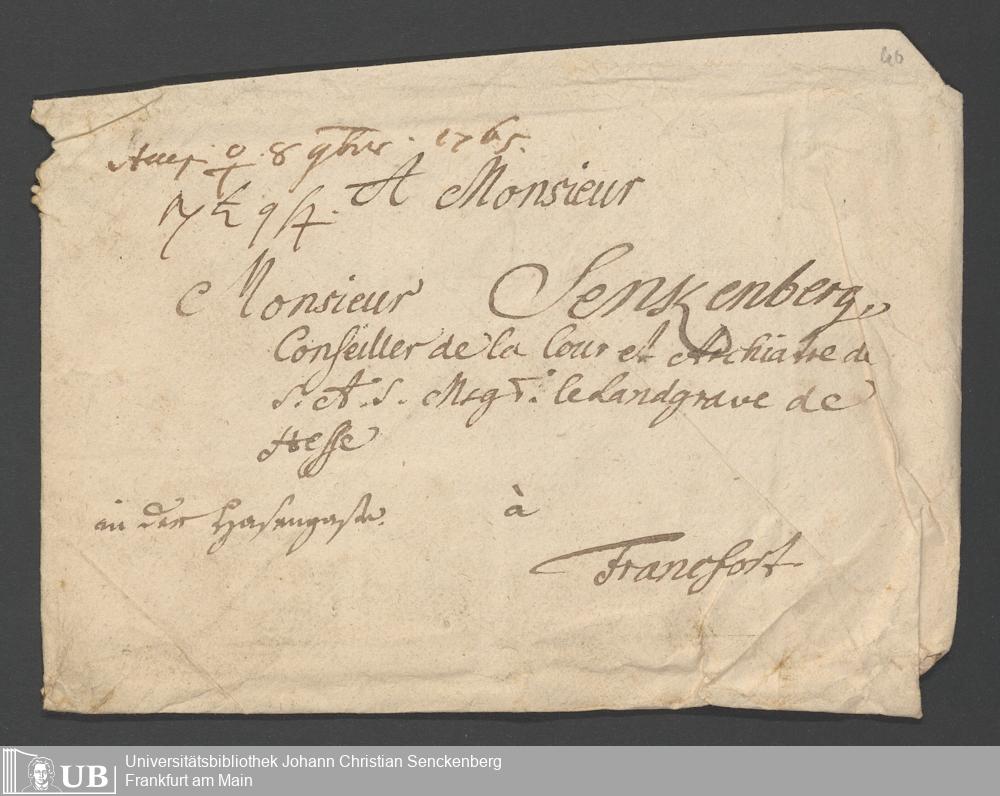 46
♀ 8 9bris. 1765.
A Monsieur
Monsieur Senkenberg,
Conseiller de la Cour et Archiatre de
S. A. S. Msgr. le Landgrave de
Hesse
in der Hasengasse.
à
Francfort
UB
Universitätsbibliothek Johann Christian Senckenberg
Frankfurt am Main